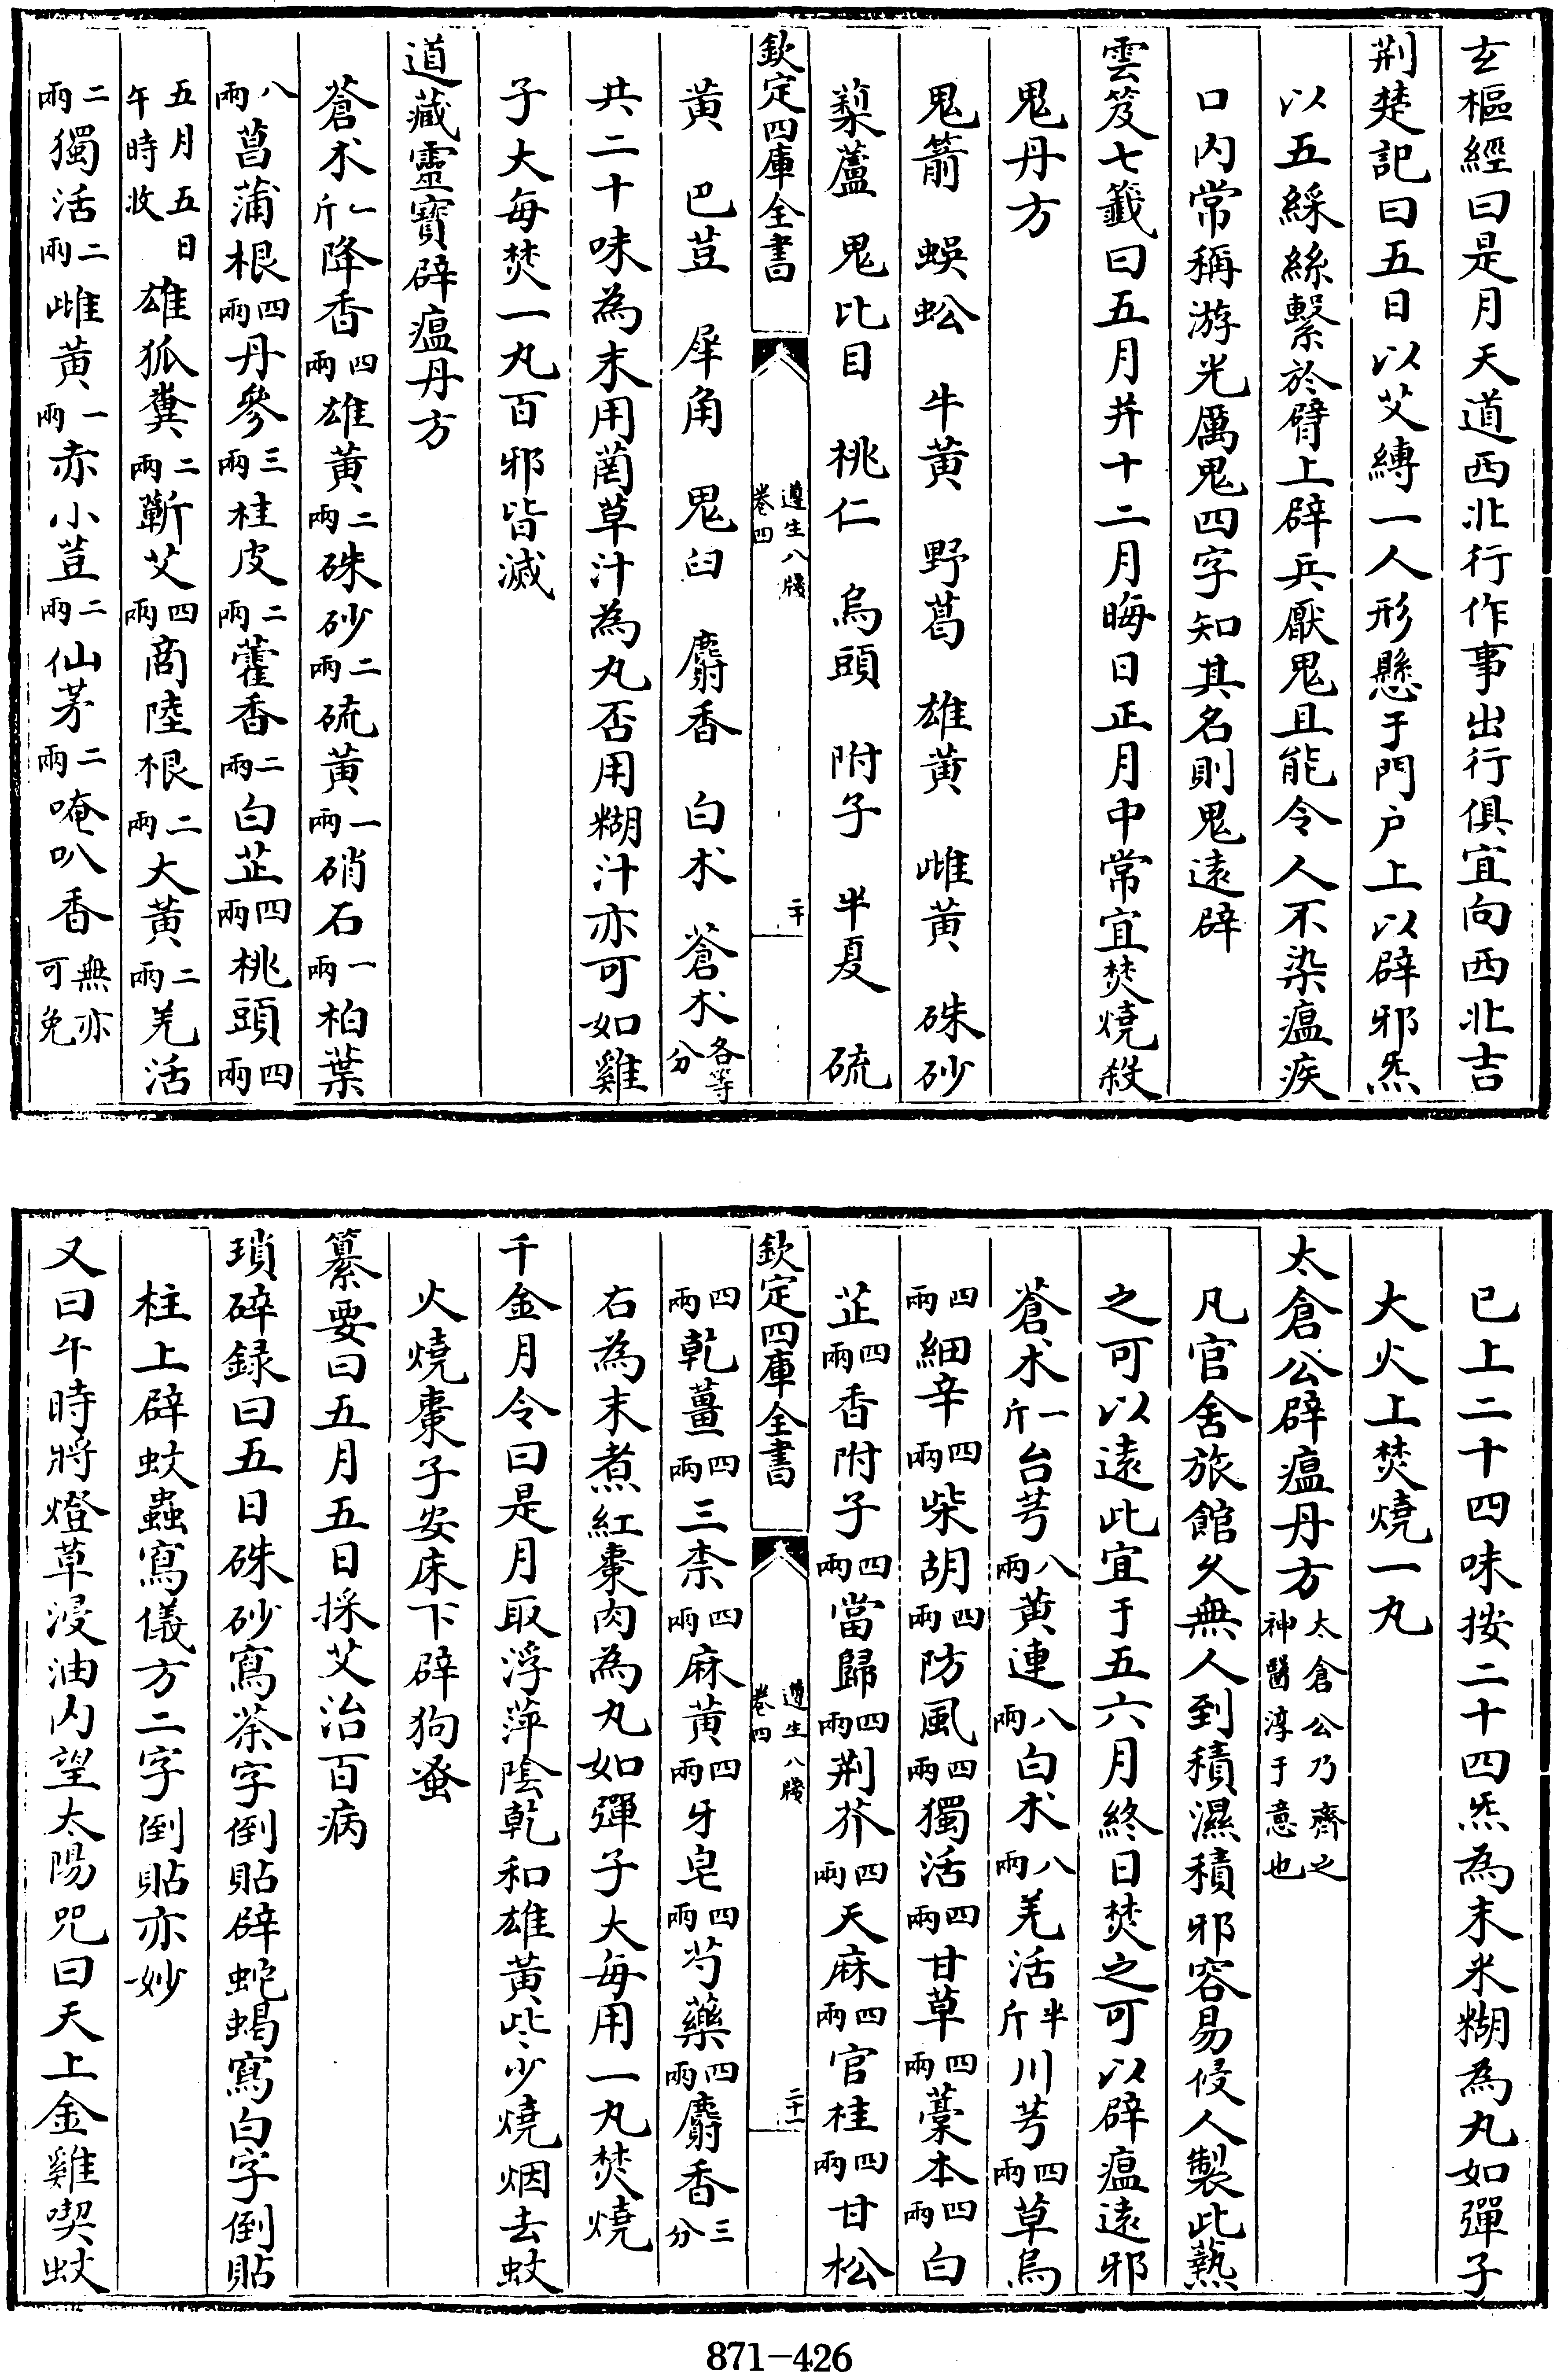 玄樞經曰是月天道西北行作事出行俱宜向西北吉
荆楚記曰五日以艾縛一人形懸于門户上以辟邪炁
以五綵絲繫於臂上辟兵厭鬼且能令人不染瘟疾
口内常稱游光厲鬼四字知其名則鬼遠辟
雲笈七籤曰五月并十二月晦日正月中常宜焚燒殺
鬼丹方
鬼箭 蜈蚣 牛黄 野葛 雄黄 雌黄 硃砂
藜蘆 鬼比目 桃仁 烏頭 附子 半夏 硫
欽定四庫全書 遵生八牋 卷四 二十
黄 巴荳 犀角 鬼臼 麝香 白术 蒼术各等分
共二十味為末用菌草汁為丸否用糊汁亦可如雞
子大每焚一丸百邪皆滅
道藏靈寶辟瘟丹方
蒼术一斤降香四兩雄黄二兩硃砂二兩硫黄一兩硝石一兩柏葉
八兩菖蒲根四兩丹參三兩桂皮二兩藿香二兩白芷四兩桃頭四兩
五月五日午時收雄狐糞二兩蘄艾四兩商陸根二兩大黄二兩羌活
二兩獨活二兩雌黄一兩赤小荳二兩仙茅二兩唵叭香無亦可免
已上二十四味按二十四炁為末米糊為丸如彈子
大火上焚燒一丸
太倉公辟瘟丹方太倉公乃齊之神醫淳于意也
凡官舍旅館久無人到積濕積邪容易侵人製此爇
之可以遠此宜于五六月終日焚之可以辟瘟遠邪
蒼术一斤台芎八兩黄連八兩白术八兩羌活半斤川芎四兩草烏
四兩細辛四兩柴胡四兩防風四兩獨活四兩甘草四兩藁本四兩白
芷四兩香附子四兩當歸四兩荆芥四兩天麻四兩官桂四兩甘松
欽定四庫全書 遵生八牋 卷四 二十一
四兩乾薑四兩三柰四兩麻黄四兩牙皂四兩芍藥四兩麝香三分
右為末煮紅棗肉為丸如彈子大每用一丸焚燒
千金月令曰是月取浮萍陰乾和雄黄些少燒烟去蚊
火燒棗子安床下辟狗蚤
纂要曰五月五日採艾治百病
瑣碎録曰五日硃砂寫荼字倒貼辟蛇蝎寫白字倒貼
柱上辟蚊蟲寫儀方二字倒貼亦妙
又曰午時將燈草浸油内望太陽咒曰天上金雞喫蚊
871-426